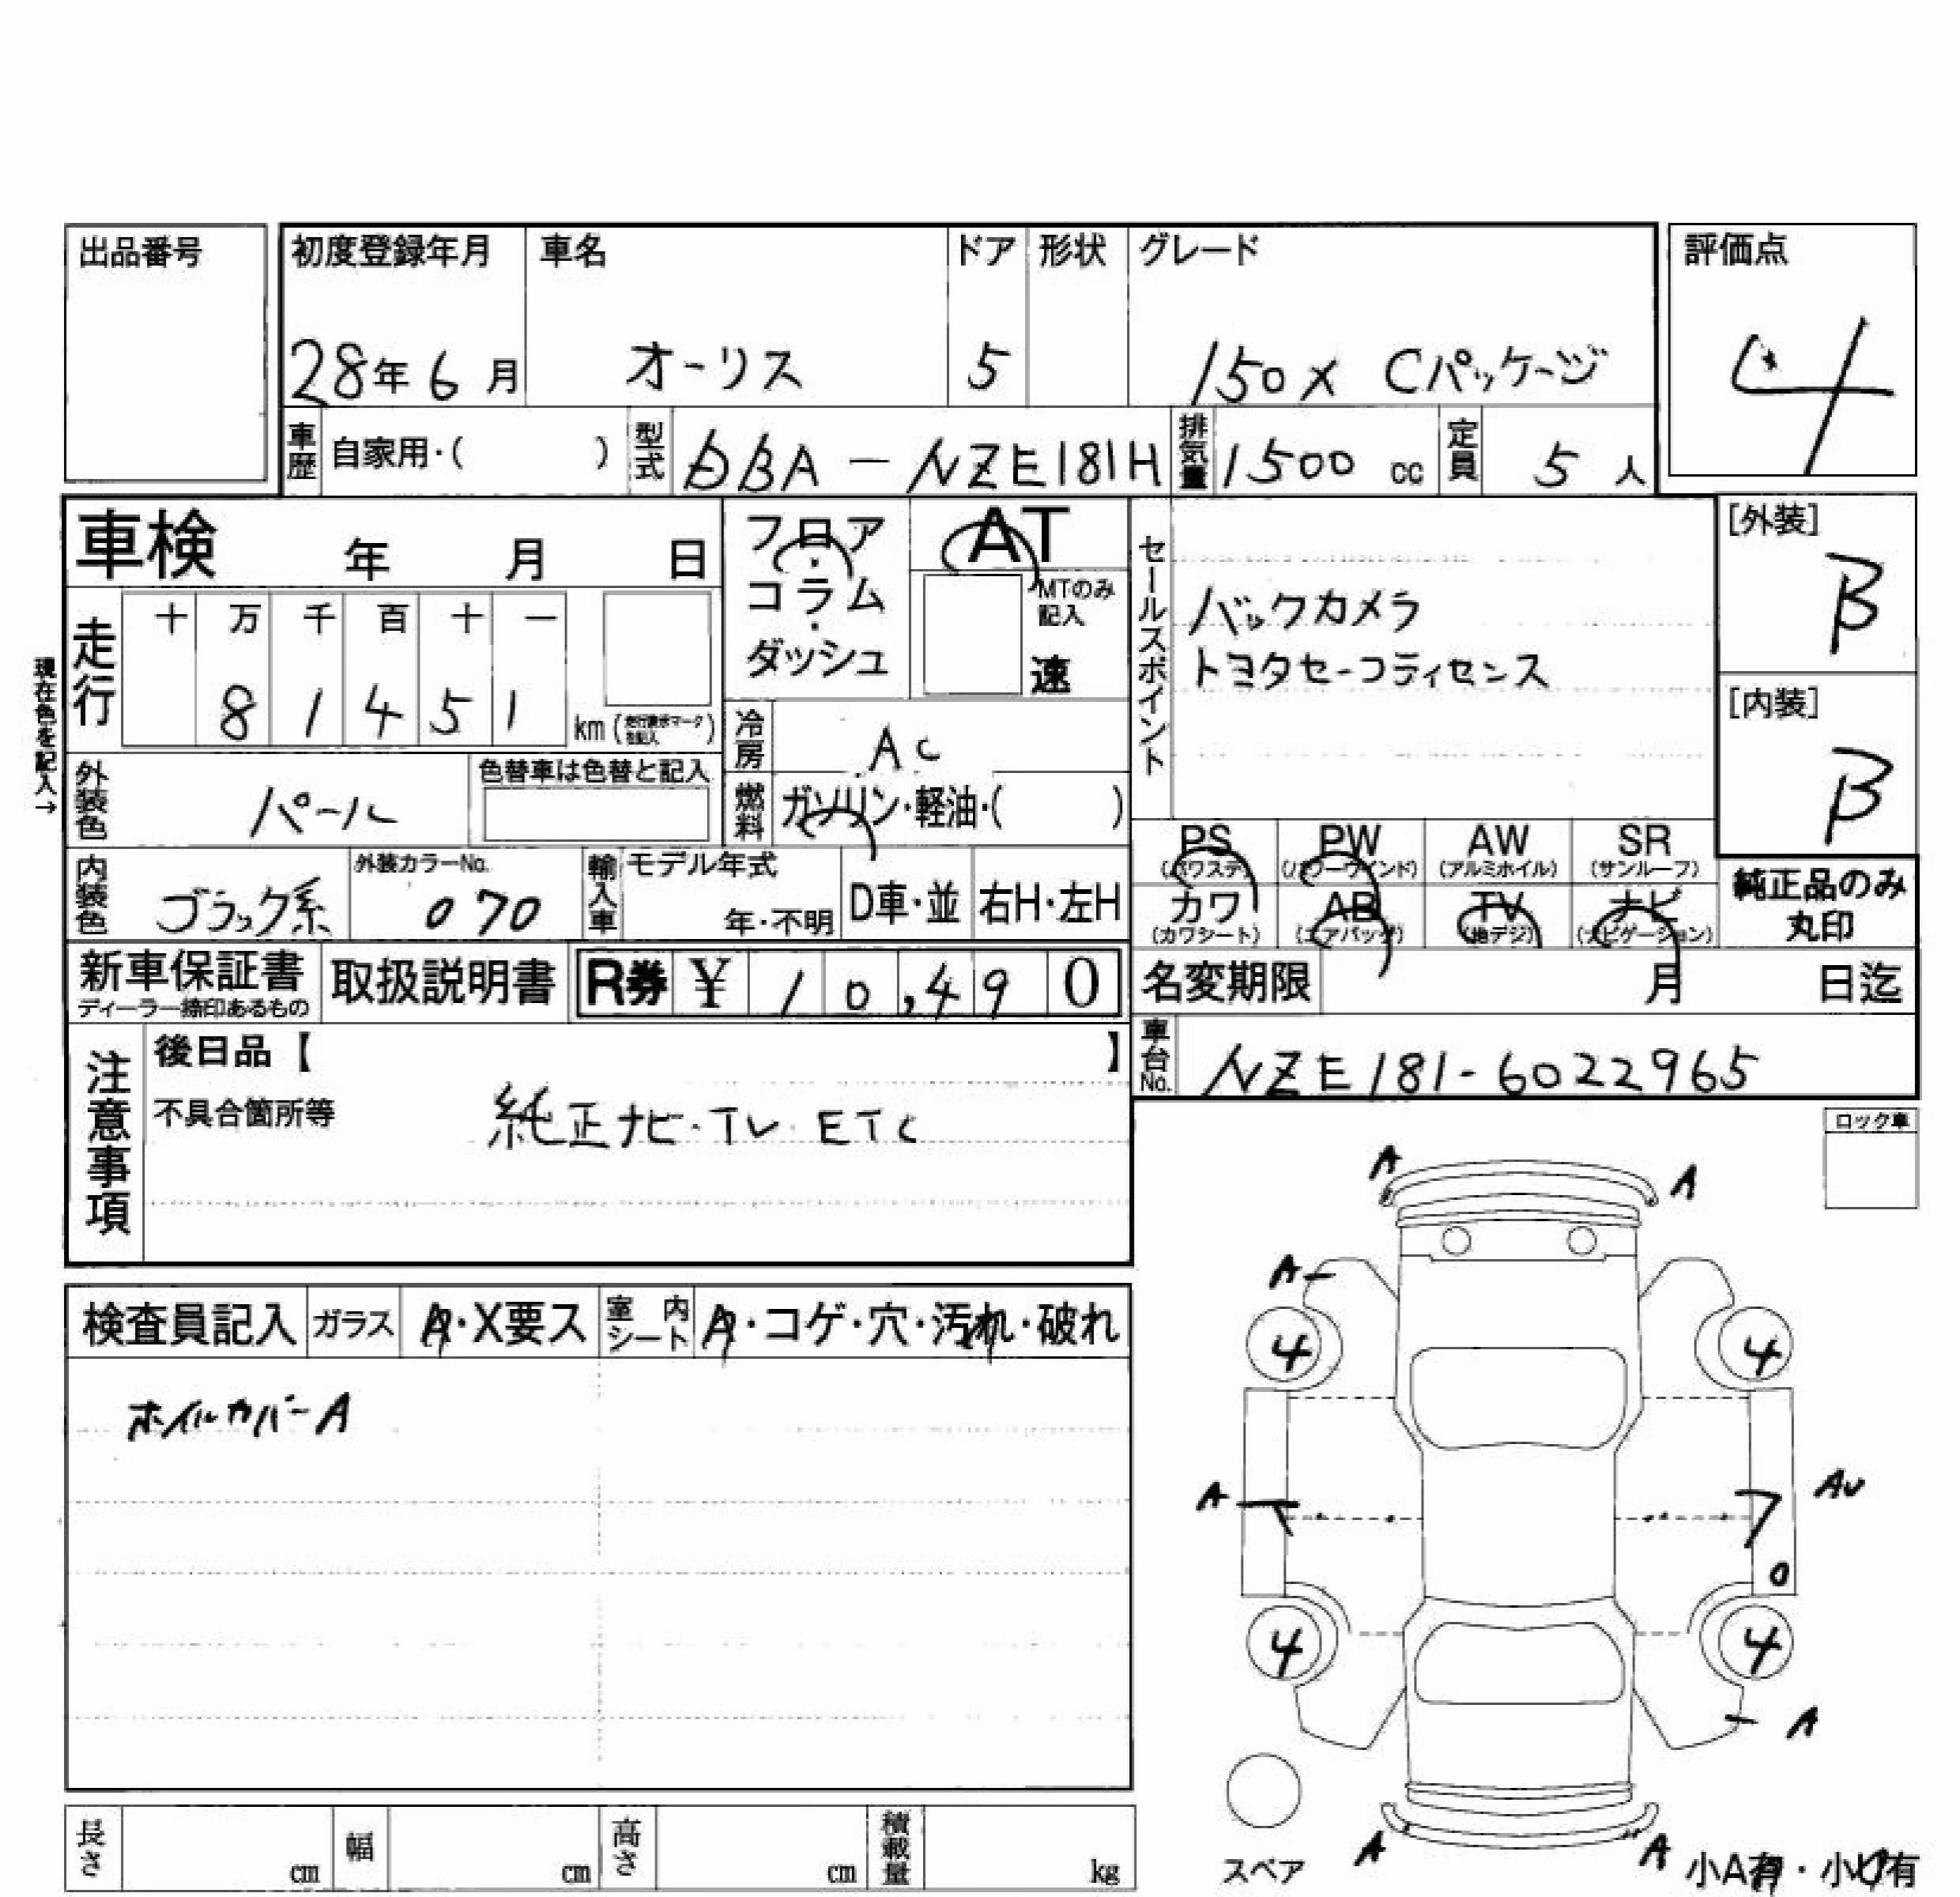 出品番号
初度登録年月 車名 ドア 形状 グレード 評価点
28年6月 オーリス 5 150X Cパッケージ 4
車歴 自家用・( ) 型式 DBA-NZE181H 排気量 1500 cc 定員 5 人
車検 年 月 日
フロア・コラム・ダッシュ
AT
MTのみ記入
速
セールスポイント
バックカメラ
トヨタセーフティセンス
[外装]
B
[内装]
B
現在色を記入→
走行 十 万 千 百 十 一
8 1 4 5 1 km
冷房 AC
外装色 パール 色替車は色替と記入
燃料 ガソリン・軽油・( )
PS PW AW SR
(パワステ) (パワーウインド) (アルミホイル) (サンルーフ)
カワ AB TV ナビ
(カワシート) (エアバッグ) (地デジ) (ナビゲーション)
純正品のみ
丸印
内装色 ブラック系 外装カラーNo. 070 輸入車 モデル年式 年・不明 D車・並 右H・左H
新車保証書 取扱説明書 R券 ¥ 10,490
ディーラー捺印あるもの
名変期限 月 日迄
車台No. NZE181-6022965
注意事項
後日品【 】
不具合箇所等 純正ナビ・TV ETC
ロック車
A A
A
4 4
A AU
0
4 4
A
A A
検査員記入 ガラス A・X要ス 室内シート A・コゲ・穴・汚れ・破れ
ホイルカバーA
スペア
小A有・小U有
長さ cm 幅 cm 高さ cm 積載量 kg